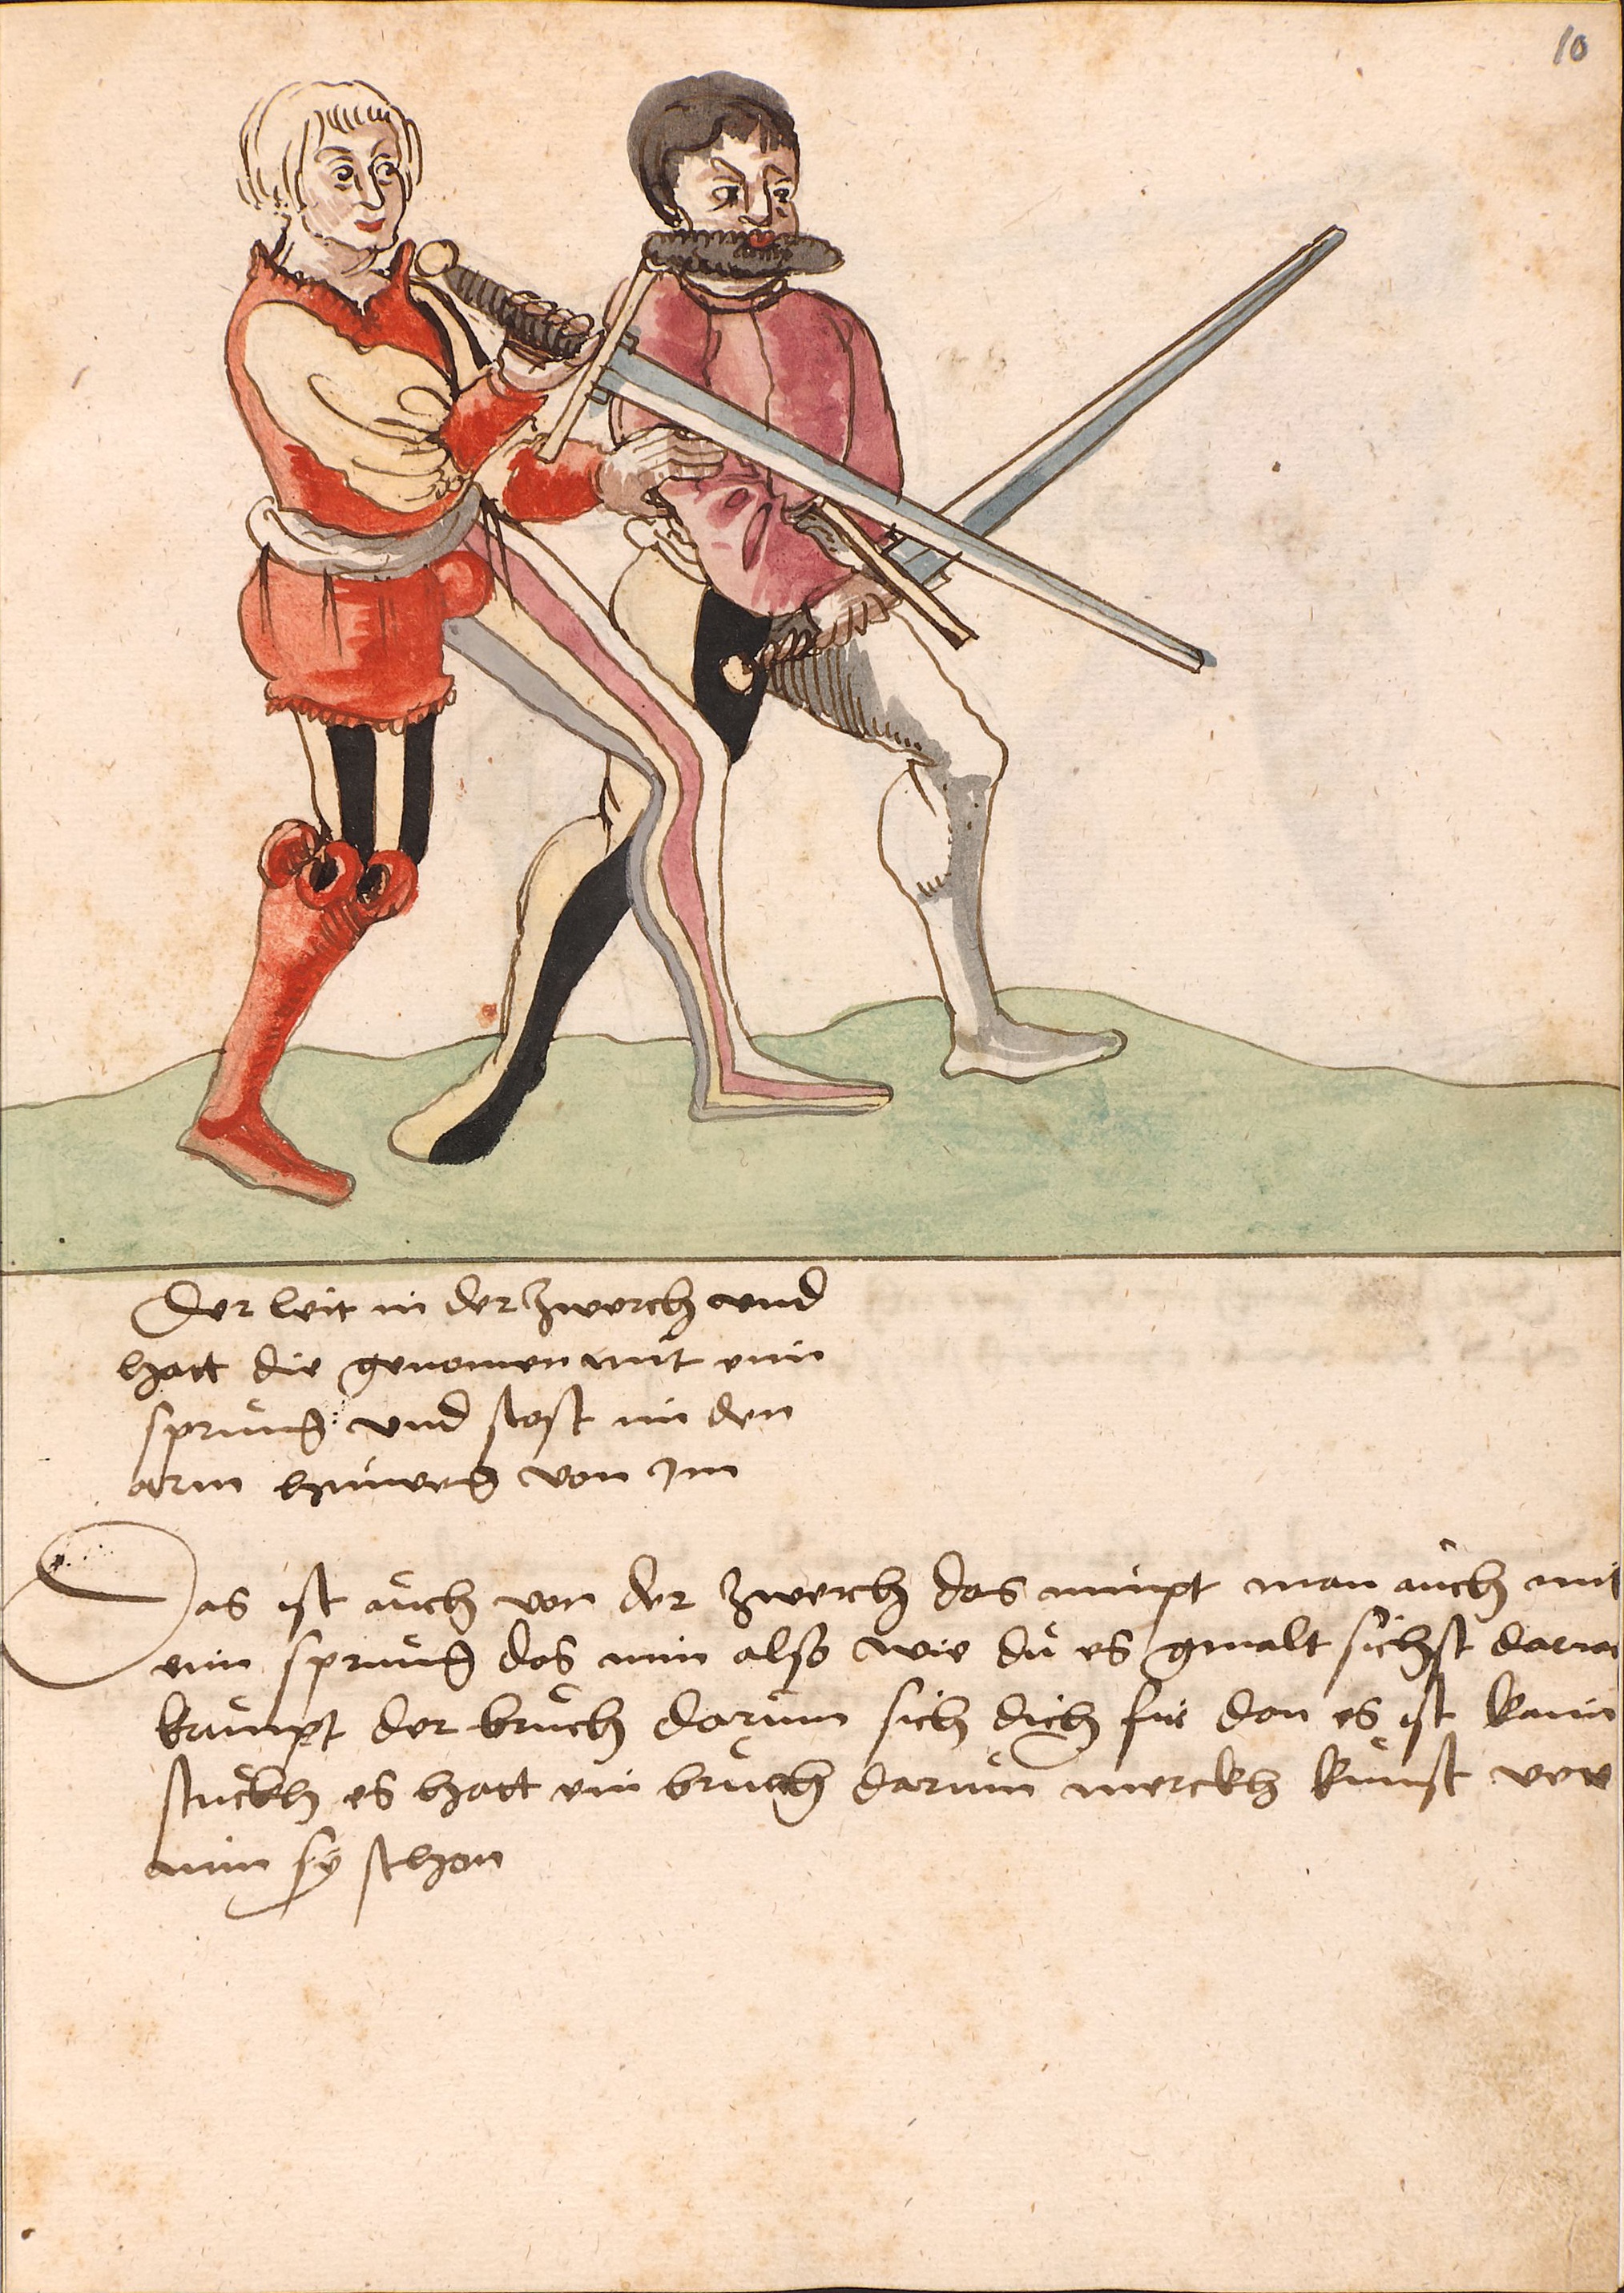 10
Der leit in der zwerch und
hatt die genomen mit eim
sprüng: und stost im den
arm hinweg von Im
Das ist aüch von der zwerch das nimpt man aüch mit
eim sprüng das nim also wie dü es gmalt sichst daran
kümpt der brüch darüm sich dich für dan es ist kain
stückh es hatt ein brüch darüm merckh künst ver
nim sÿ schon